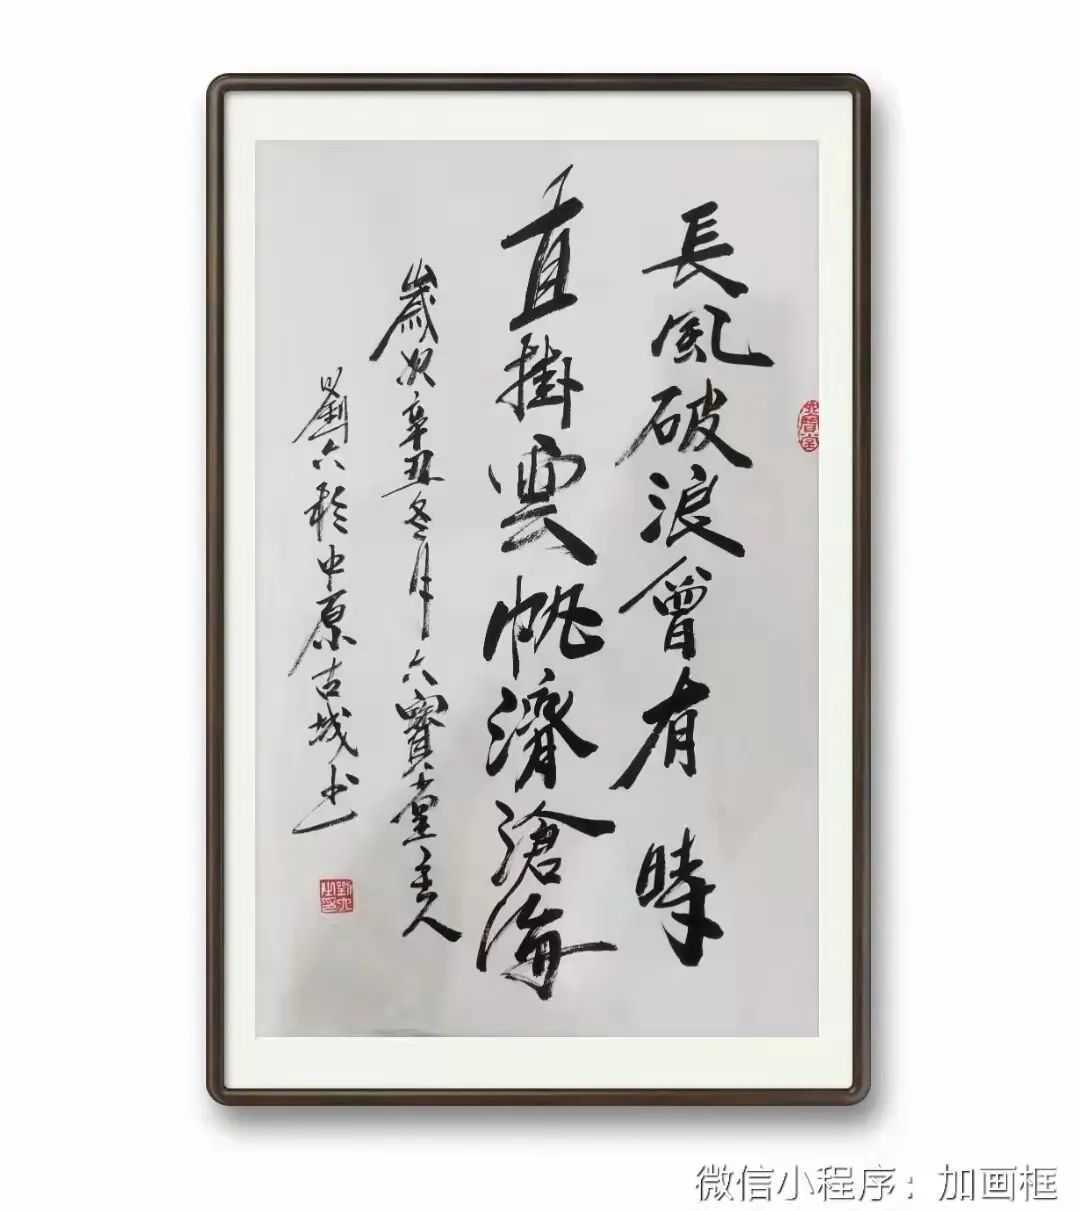 長風破浪會有時
直掛雲帆濟滄海
歲次辛丑冬月六寶堂主人
劉六於中原古城书
六寶堂
劉六之印
微信小程序：加画框